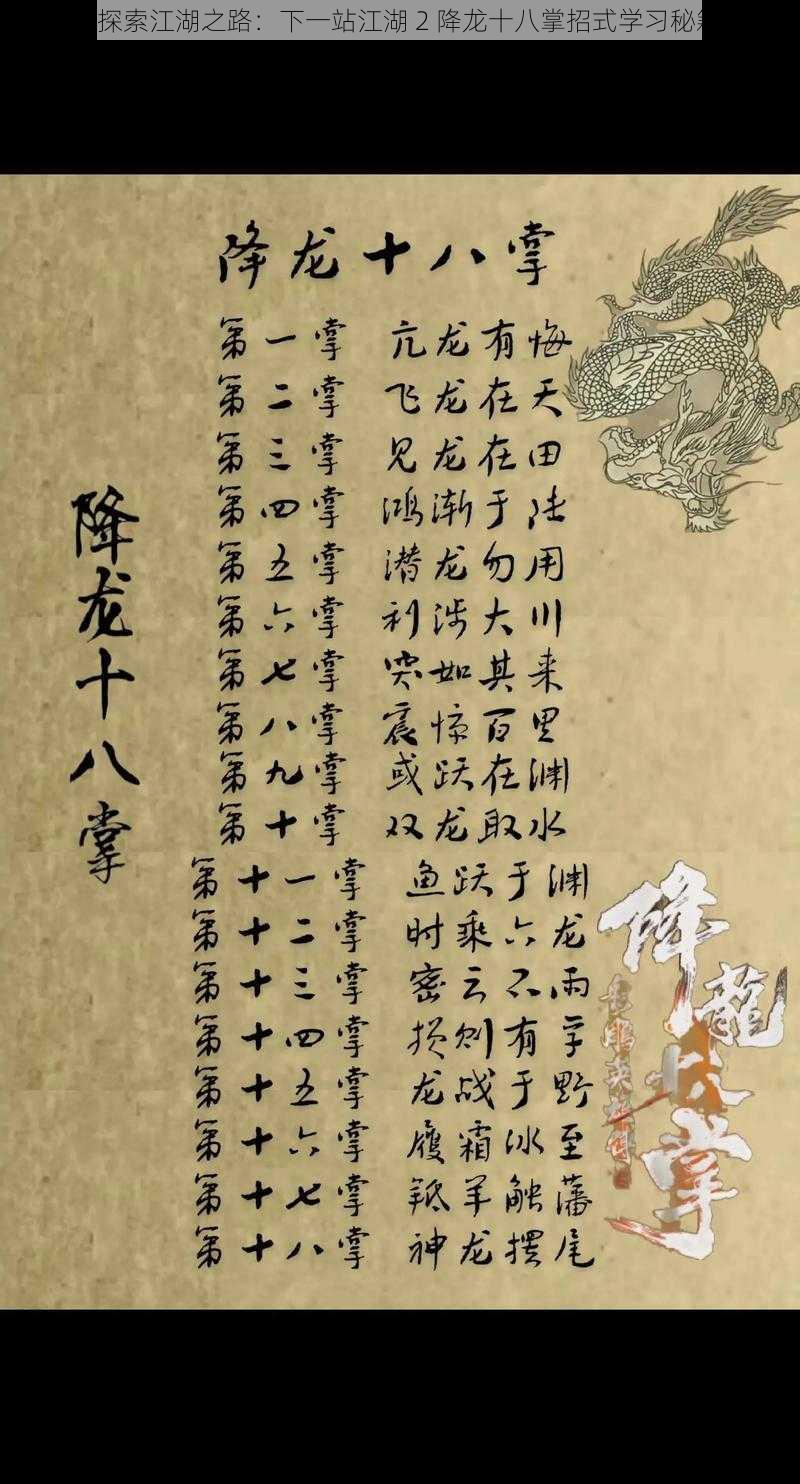 探索江湖之路：下一站江湖 2 降龙十八掌招式学习秘
降龙十八掌
第一掌 亢龙有悔
第二掌 飞龙在天
第三掌 见龙在田
第四掌 鸿渐于陆
第五掌 潜龙勿用
第六掌 利涉大川
第七掌 突如其来
第八掌 震惊百里
第九掌 或跃在渊
第十掌 双龙取水
第十一掌 鱼跃于渊
第十二掌 时乘六龙
第十三掌 密云不雨
第十四掌 损则有孚
第十五掌 龙战于野
第十六掌 履霜冰至
第十七掌 羝羊触藩
第十八掌 神龙摆尾
降龙十八掌
降龍
掌